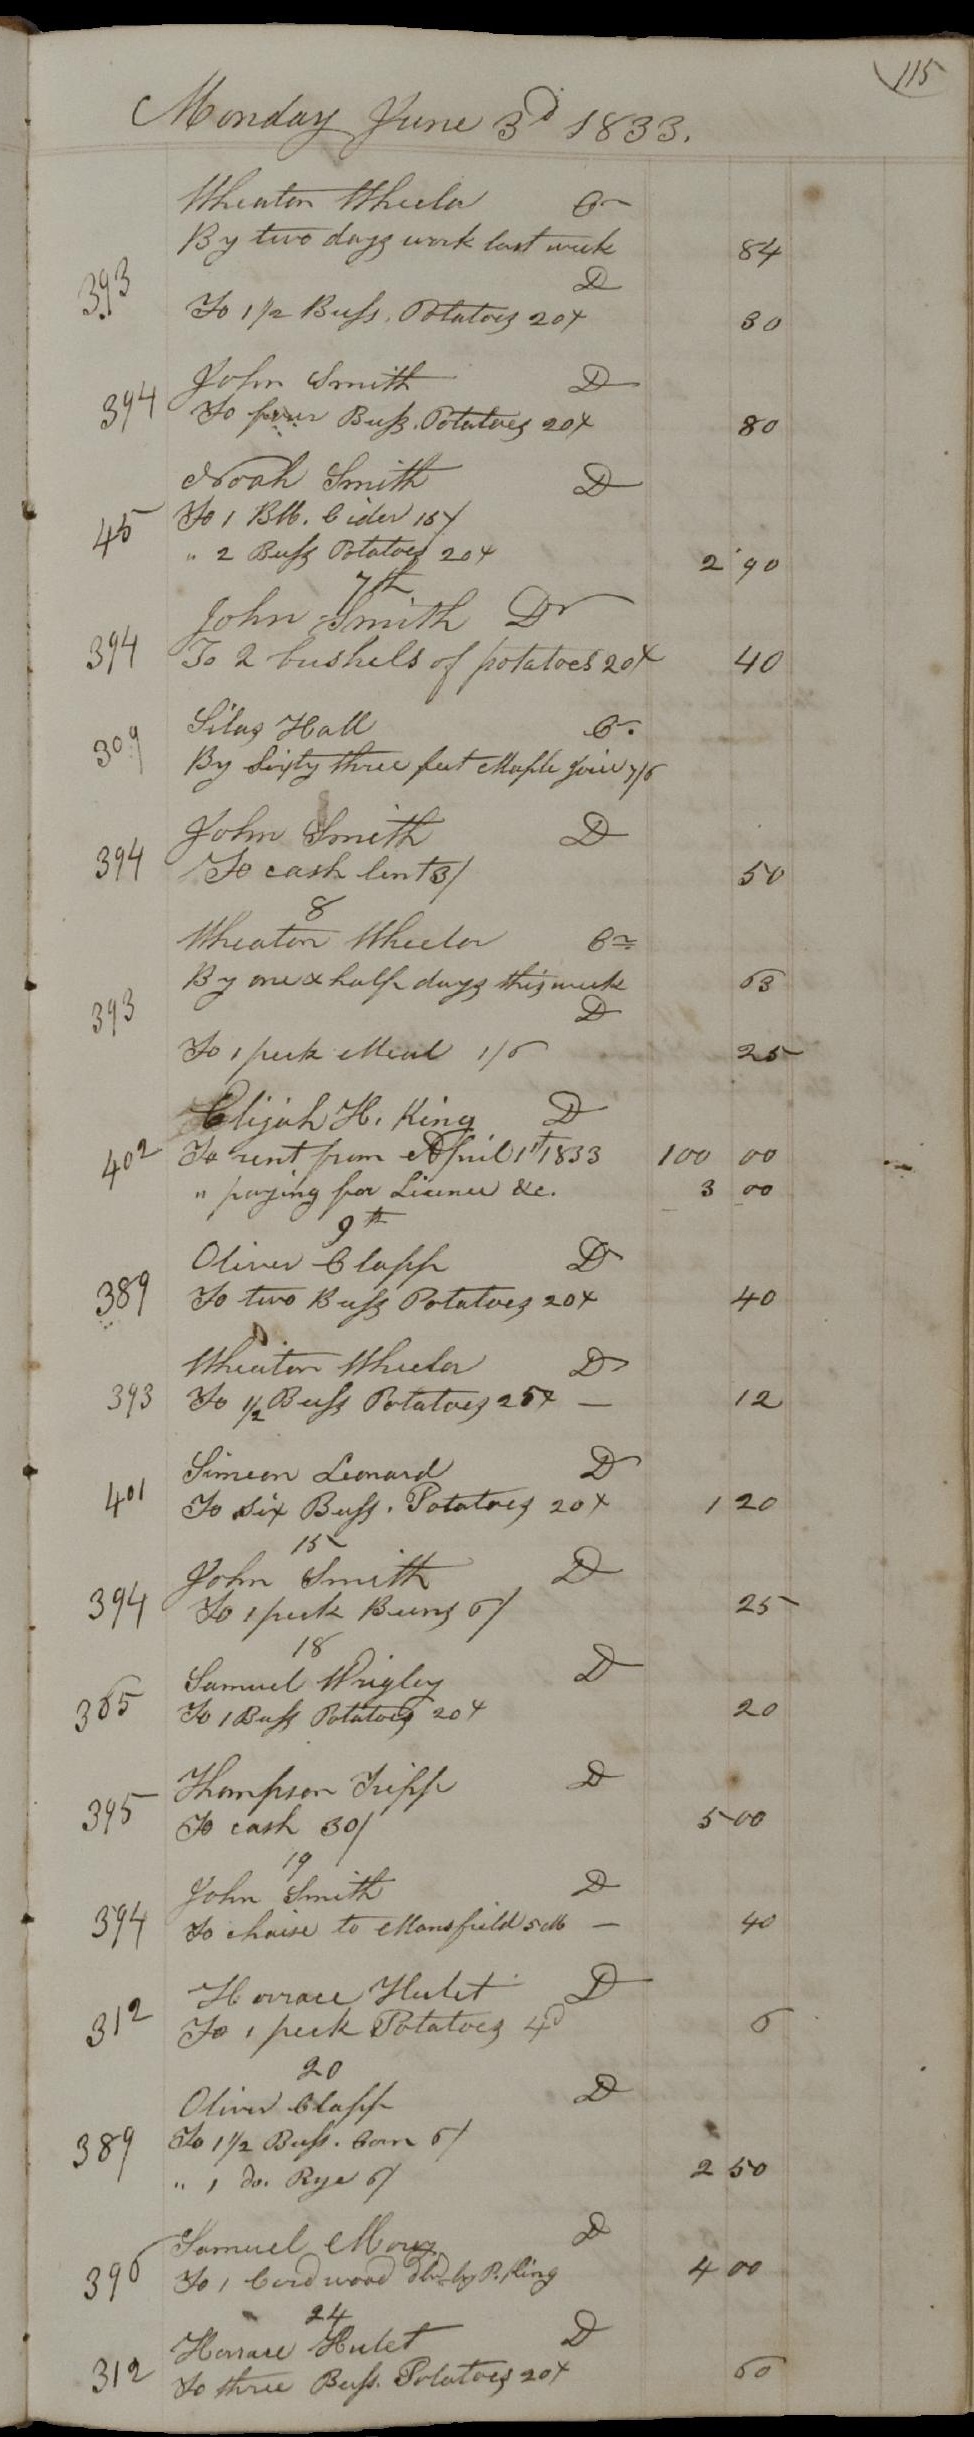 115
Monday June 3d 1833.
Wheaton Wheeler Cr
By two days work last week 84
393
D
To 1 1/2 Bush. Potatoes 20x 30
John Smith D
394 To four Bush. Potatoes 20x 80
Noah Smith D
45 To 1 Bbl. Cider 15/
" 2 Bush Potatoes 20x 2 90
7th
John Smith Dr
394 To 2 bushels of potatoes 20x 40
Silas Hall Cr.
309 By Sixty three feet Maple Joice 7/6
John Smith D
394 To cash lent 3/ 50
8
Wheaton Wheeler Cr
By one & half days this week 63
393 D
To 1 peck Meal 1/6 25
Elijah H. King D
402 To rent from April 1st 1833 100 00
" paying for Licence &c. 3 00
9th
Oliver Clapp D
389 To two Bush Potatoes 20x 40
Wheaton Wheeler D
393 To 1/2 Bush Potatoes 25x — 12
Simeon Leonard D
401 To six Bush. Potatoes 20x 1 20
15
John Smith D
394 To 1 peck Beans 6/ 25
18
Samuel Wrigley D
365 To 1 Bush Potatoes 20x 20
Thompson Tripp D
395 To cash 30/ 5 00
19
John Smith D
394 To chaise to Mansfield 5 M — 40
Horrace Hulet D
312 To 1 peck Potatoes 4d 6
20
Oliver Clapp D
389 To 1 1/2 Bush. Corn 6/
" 1 do. Rye 6/ 2 50
Samuel D
396 To 1 Cord wood by P. King 4 00
24
Horrace Hulet D
312 To three Bush. Potatoes 20x 60